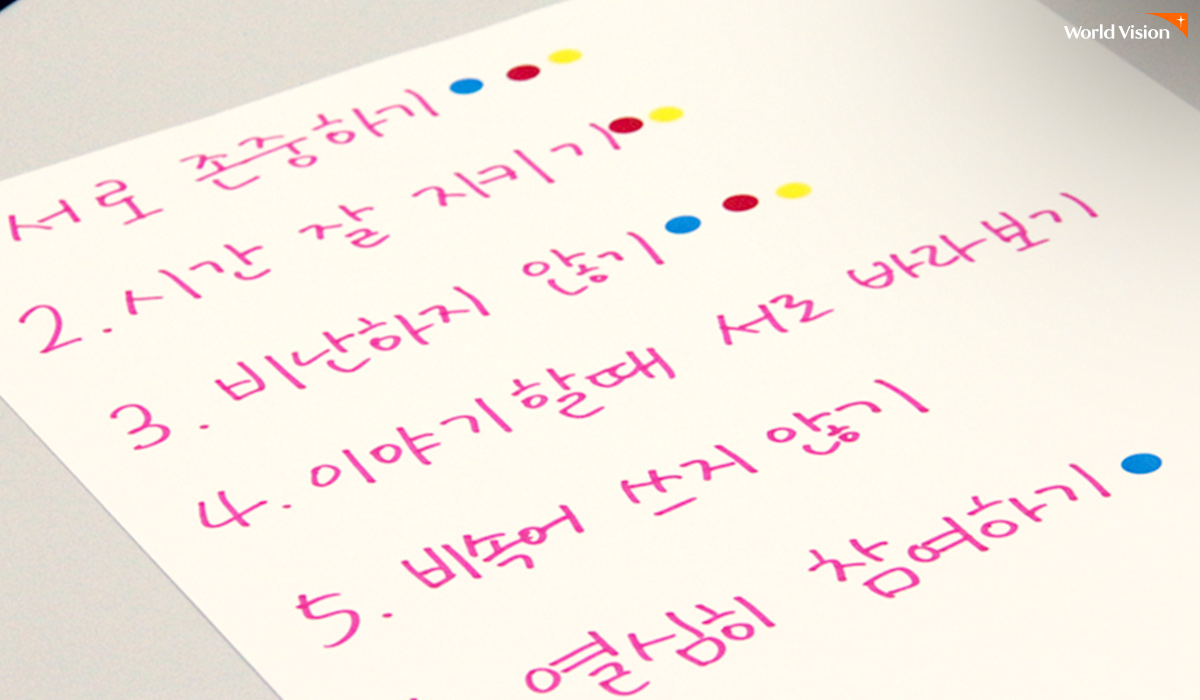 World Vision
서로 존중하기
2. 시간 잘 지키기
3. 비난하지 않기
4. 이야기할때 서로 바라보기
5. 비속어 쓰지 않기
열심히 참여하기